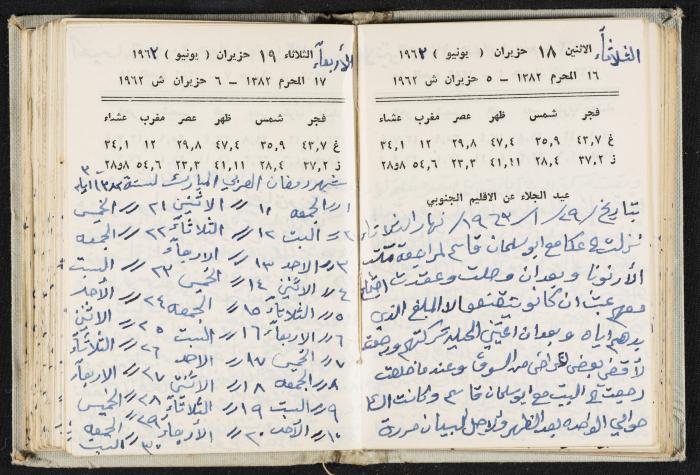 الثلاثاء
الاثنين ١٨ حزيران ( يونيو ) ١٩٦٢
١٦ المحرم ١٣٨٢ – ٥ حزيران ش ١٩٦٢
فجر شمس ظهر عصر مغرب عشاء
غ ٤٣,٧ ٣٥,٩ ٤٧,٤ ٢٩,٨ ١٢ ٣٤,١
ز ٣٧,٢ ٢٨,٤ ٤١,١١ ٢٣,٣ ٥٤,٦ ٢٨و٨
عيد الجلاء عن الاقليم الجنوبي
بتاريخ /٢٩/ ١/ ١٩٦٣/ نهار الثلاثاء
نزلت ع عكا مع ابو سلمان قاسم لمراجعة
الأرنونا وبعدان وصلت وعقدت
معهم عبث ان كانو يقنعو الا المبلغ الذي
بدهم اياه وبعدان
لأقضي بعض اغراضي من السوق وعندما خلصت
رجعت ع البيت مع ابو سلمان قاسم وكانت
حوالي الواحده بعد الظهر ولاجل البيان حررة
الأربعاء
الثلاثاء ١٩ حزيران ( يونيو ) ١٩٦٢
١٧ المحرم ١٣٨٢ – ٦ حزيران ش ١٩٦٢
فجر شمس ظهر عصر مغرب عشاء
غ ٤٣,٧ ٣٥,٩ ٤٧,٤ ٢٩,٨ ١٢ ٣٤,١
ز ٣٧,٢ ٢٨,٤ ٤١,١١ ٢٣,٣ ٥٤,٦ ٢٨و٨
شهر رمضان العربي المبارك لسنة
١// الجمعه ١١// الاثنين ٢١// الخميس
٢// السبت ١٢// الثلاثاء ٢٢// الجمعه
٣// الاحد ١٣// الاربعاء ٢٣// السبت
٤// الاثنين ١٤// الخميس ٢٤// الأحد
٥// الثلاثاء ١٥// الجمعه ٢٥// الاثنين
٦// الاربعاء ١٦// السبت ٢٦// الثلاثاء
٧// الخميس ١٧// الاحد ٢٧// الاربعاء
٨// الجمعه ١٨// الاثنين ٢٨// الخميس
٩// السبت ١٩// الثلاثاء ٢٩// الجمعه
١٠// الأحد ٢٠// الأربعاء ٣٠// السبت